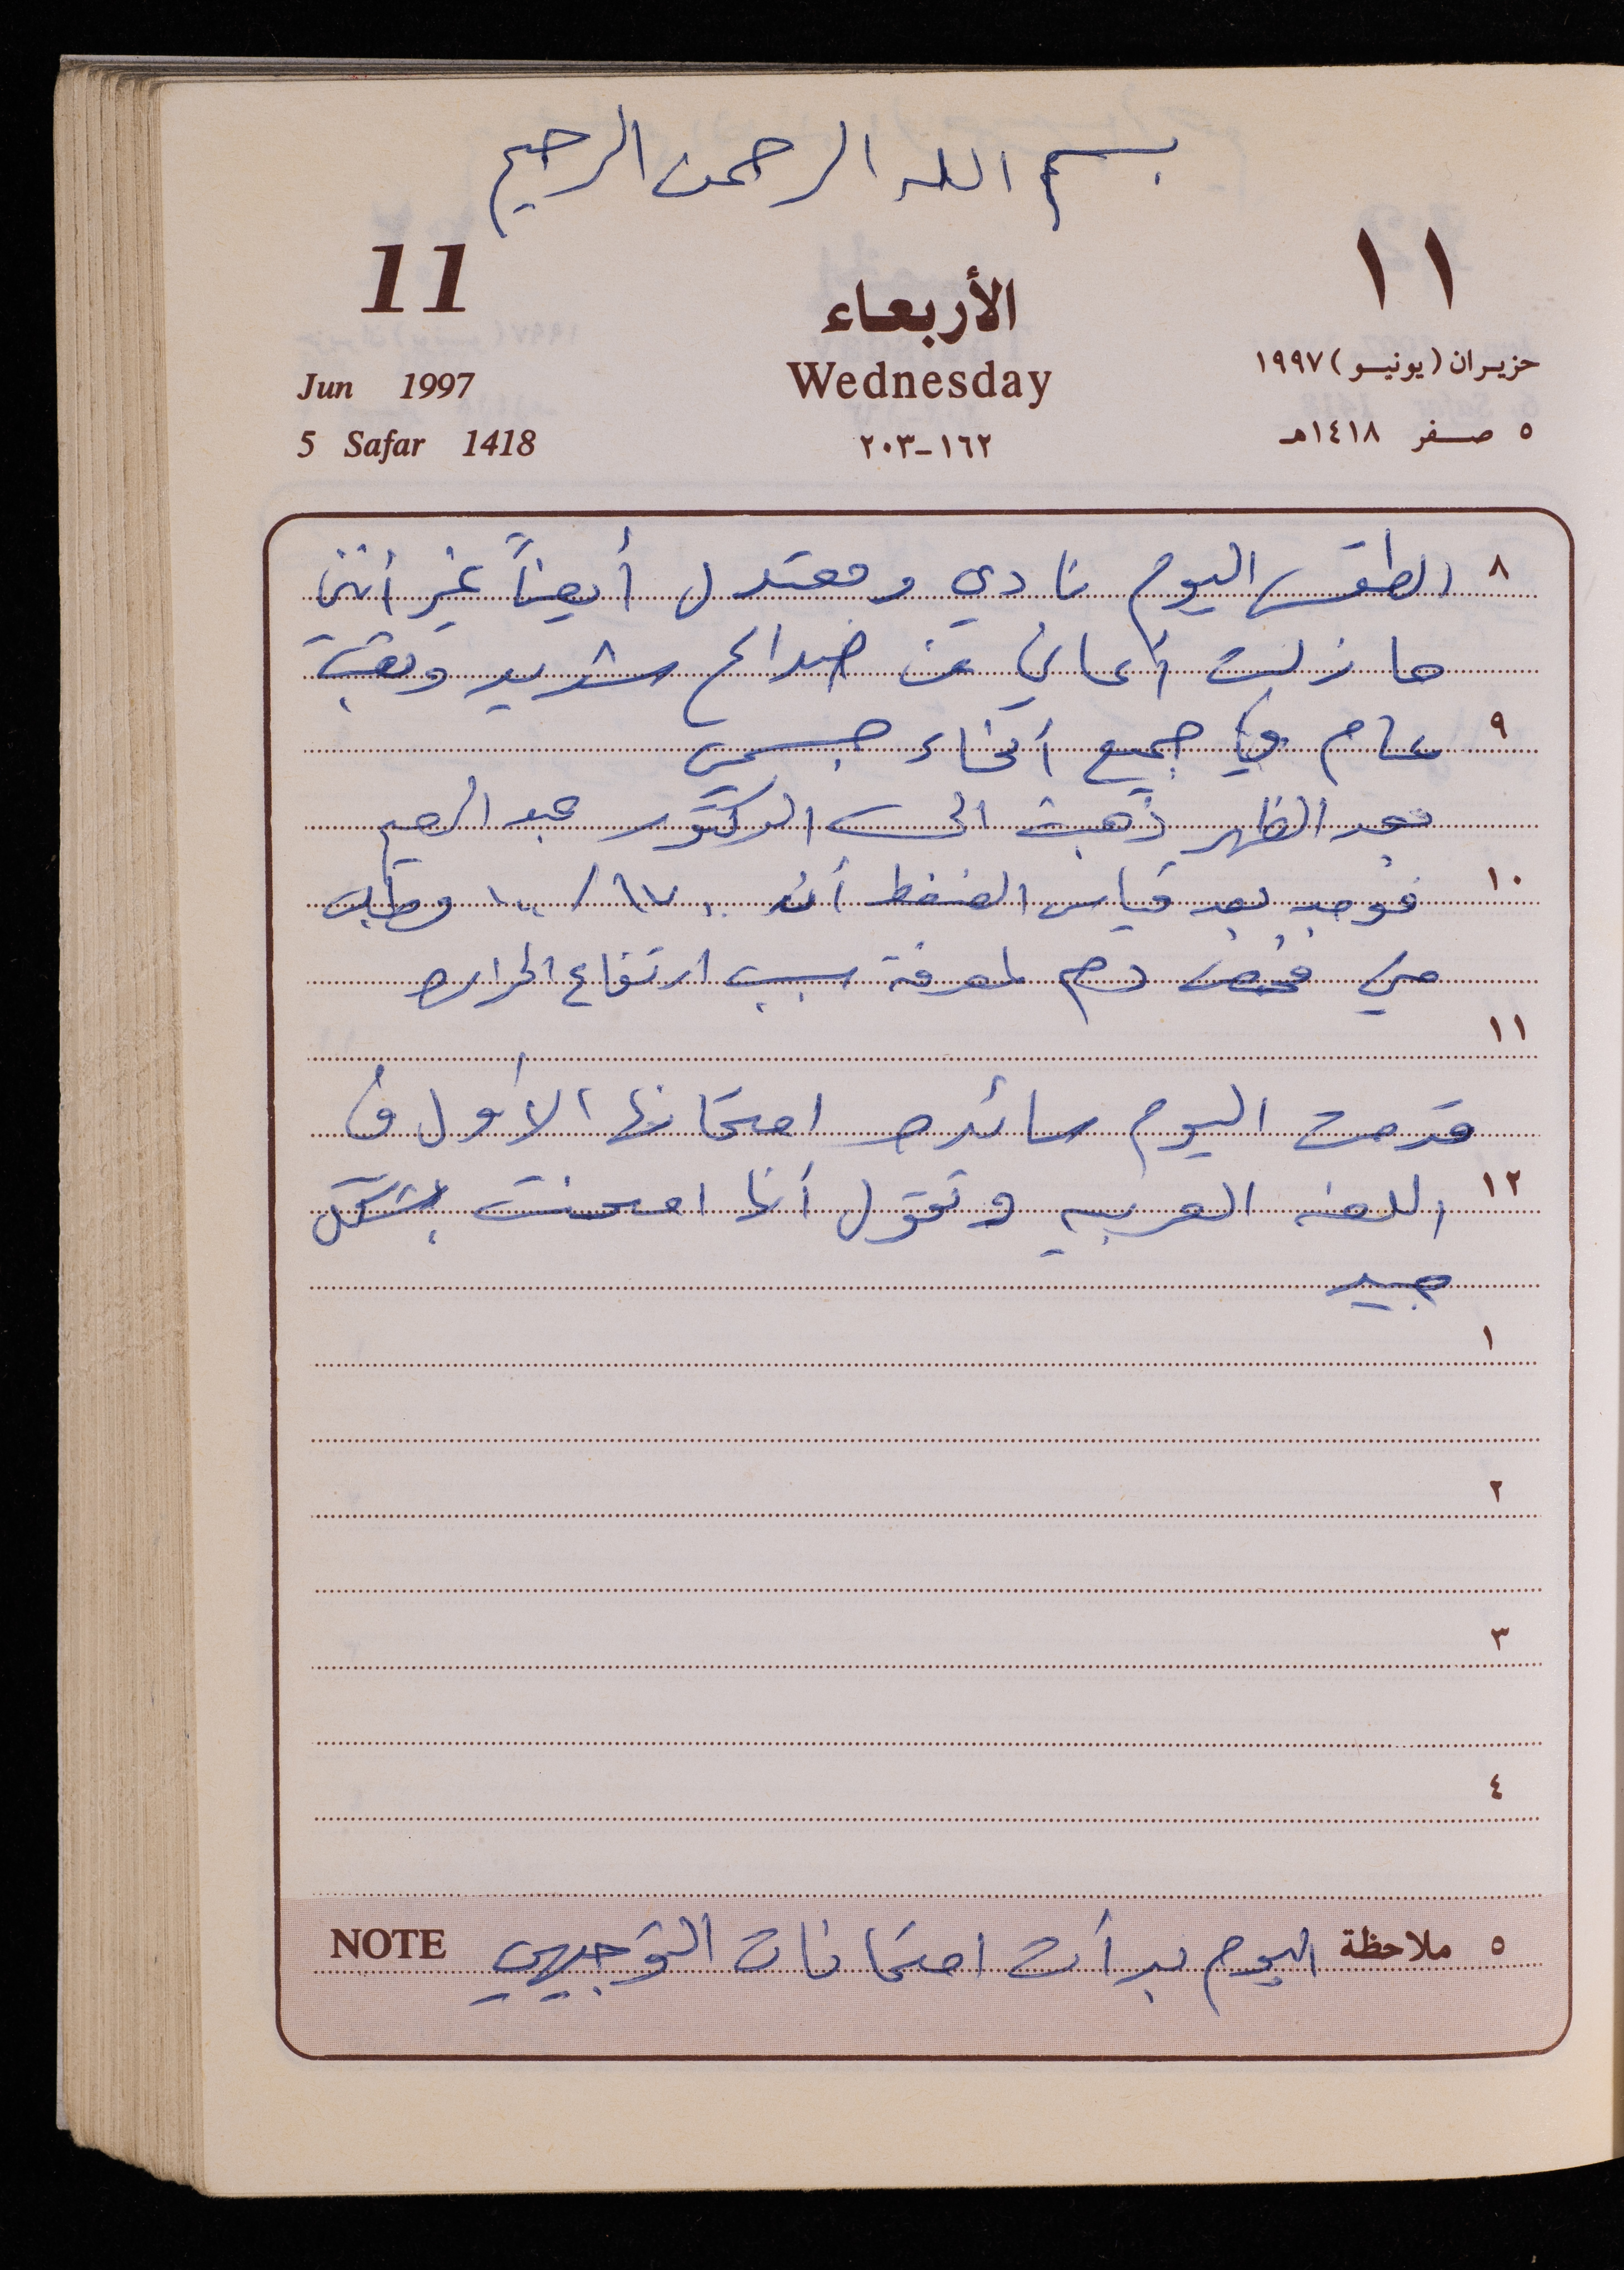 بسم الله الرحمن الرحيم
11 الأربعاء ١١
Jun 1997 Wednesday حزيران (يونيو) ١٩٩٧
5 Safar 1418 ١٦٢-٢٠٣ ٥ صفر ١٤١٨هـ
٨ الطقس اليوم نادي ومعتدل أيضاً غير أنني
ما زلت أعاني من صداع شديد وتعب
٩ عام في جميع أنحاء جسمي
بعد الظهر ذهبت الى الدكتور عبد الرحيم
١٠ فوجد بعد قياس الضغط أنه / ١٠٠ وطلب
مني فحص دم لمعرفة سبب ارتفاع الحراره
١١
قدمت اليوم سائده امتحانها الأول في
١٢ اللغه العربيه وتقول أنها امتحنت بشكل
جيد
١
٢
٣
٤
٥ ملاحظة اليوم بدأت امتحانات التوجيهي NOTE